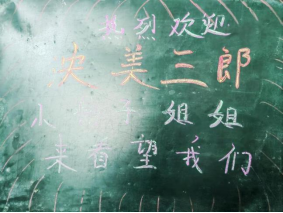 热烈欢迎
史美三郎
小 子姐姐
来看望我们